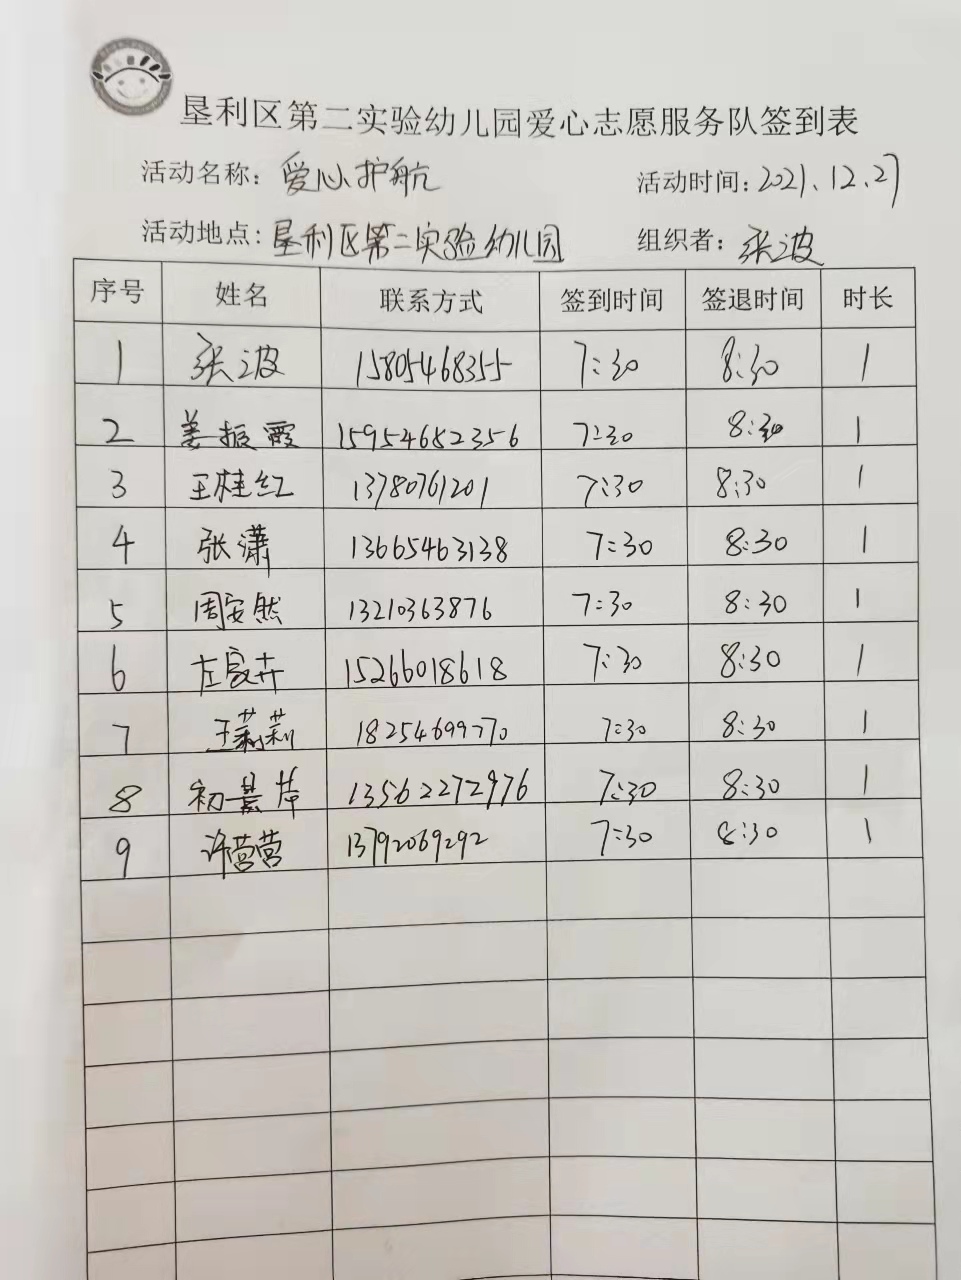 垦利区第二实验幼儿园爱心志愿服务队签到表
活动名称：爱心护航 活动时间：2021.12.27
活动地点：垦利区第二实验幼儿园 组织者：张波
序号 姓名 联系方式 签到时间 签退时间 时长
1 张波 15805468355 7:30 8:30 1
2 姜振霞 15954682356 7:30 8:30 1
3 王桂红 13780761201 7:30 8:30 1
4 张潇 13665463138 7:30 8:30 1
5 周安然 13210363876 7:30 8:30 1
6 左良卉 15266018618 7:30 8:30 1
7 王莉莉 18254699770 7:30 8:30 1
8 初 13562272976 7:30 8:30 1
9 许营营 13792069292 7:30 8:30 1